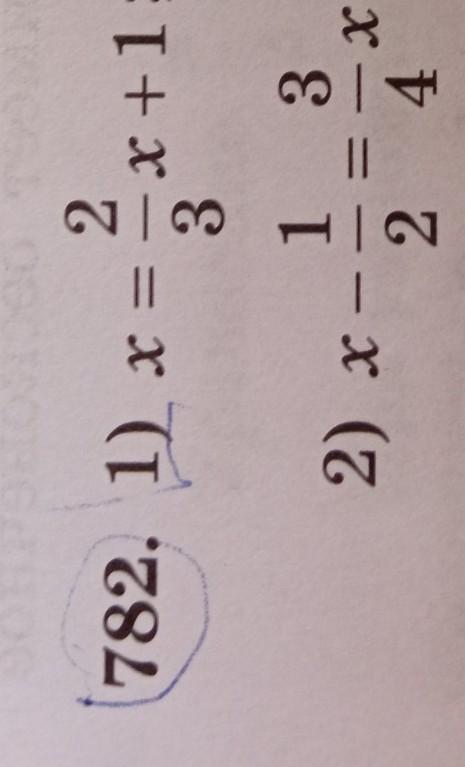 782. 1) x = 2/3 x + 1;
2) x − 1/2 = 3/4 x